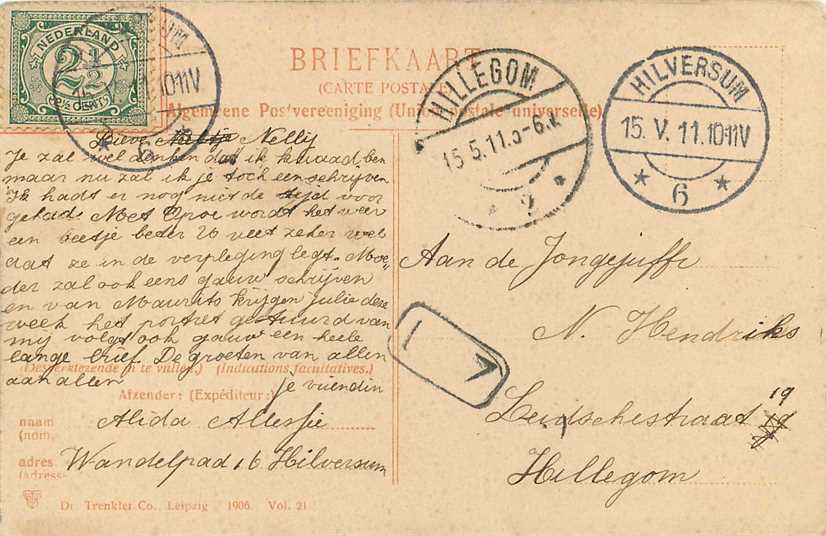 NEDERLAND
2½
(2½ CENT)
10-11V
6
BRIEFKAART
(CARTE POSTALE)
Algemeene Postvereeniging (Union postale universelle)
HILLEGOM
15.5.11.5-6.N
2
HILVERSUM
15.V.11.10-11V
6
Lieve Nelly
Je zal wel denken dat ik kwaad ben
maar nu zal ik je toch een schrijven
Ik hadt er nog niet de tijd voor
gehad. Met Opoe wordt het weer
een beetje beter U weet zeker wel
dat ze in de verpleging legt. Moe=
der zal ook eens gauw schrijven
en van Maurits krijgen julie deze
week het portret gestuurd van
mij volgt ook gauw een heele
lange brief. De groeten van allen
aan allen
je vriendin
(Desverkiezende in te vullen.) (Indications facultatives.)
Afzender: (Expéditeur:)
naam (nom,
Alida Allessie
adres (adresse
Wandelpad 16 Hilversum
Dr. Trenkler Co., Leipzig 1906. Vol. 21
Aan de Jongejuffr
N. Hendriks
Leidschestraat 19
Hillegom
1